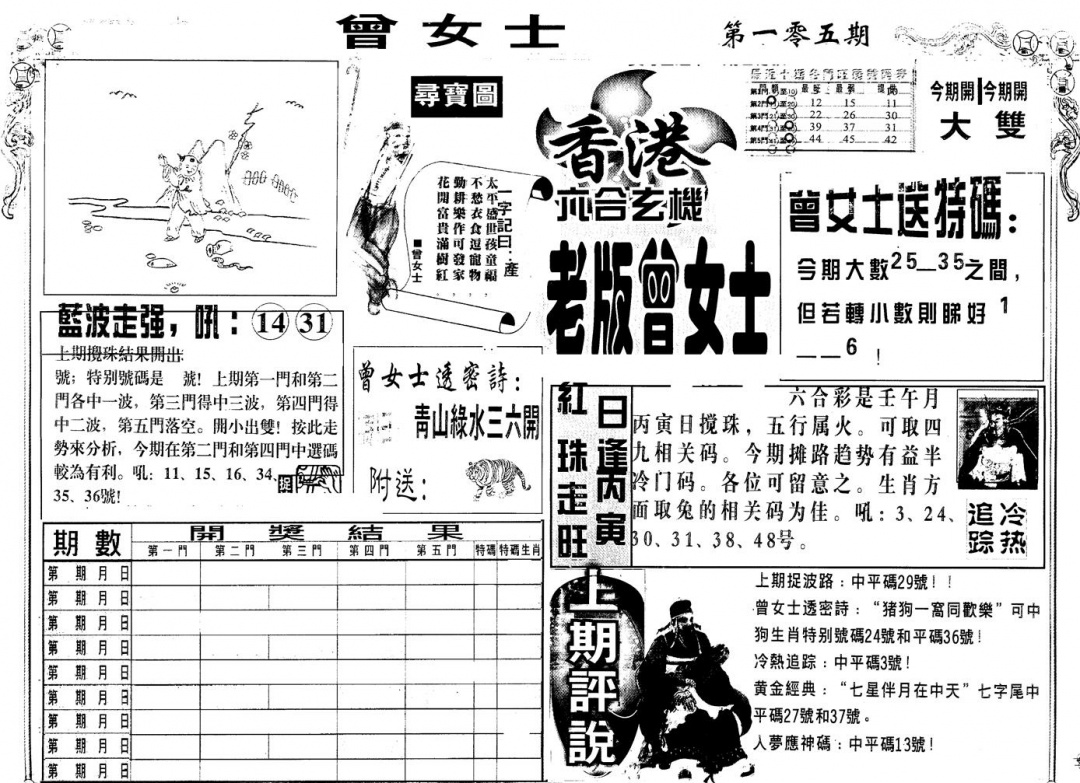 曾女士
第一零五期
尋寶圖
一字記曰：產
太平盛世孩童福，
不愁衣食逗寵物，
勤耕樂作可發家，
花開富貴滿樹紅。
■曾女士
香港
六合玄機
老版曾女士
最旺 最弱
12 15 11
22 26 30
39 37 31
44 45 42
今期開 今期開
大 雙
曾女士送特碼：
今期大數25—35之間，
但若轉小數則睇好1
——6！
藍波走强，吼：14 31
上期攪珠結果開出
號；特别號碼是 號！上期第一門和第二
門各中一波，第三門得中三波，第四門得
中二波，第五門落空。開小出雙！按此走
勢來分析，今期在第二門和第四門中選碼
較為有利。吼：11、15、16、34、
35、36號！
捉
曾女士透密詩：
青山綠水三六開
附送：
日逢丙寅
紅珠走旺
六合彩是壬午月
丙寅日搅珠，五行属火。可取四
九相关码。今期摊路趋势有益半
冷门码。各位可留意之。生肖方
面取兔的相关码为佳。吼：3、24、
30、31、38、48号。
冷热
追踪
期數
開獎結果
第一門 第二門 第三門 第四門 第五門 特碼 特碼生肖
第 期 月 日
第 期 月 日
第 期 月 日
第 期 月 日
第 期 月 日
第 期 月 日
第 期 月 日
第 期 月 日
第 期 月 日
上期評說
上期捉波路：中平碼29號！！
曾女士透密詩：“猪狗一窩同歡樂”可中
狗生肖特别號碼24號和平碼36號！
冷熱追踪：中平碼3號！
黄金經典：“七星伴月在中天”七字尾中
平碼27號和37號。
人夢應神碼：中平碼13號！